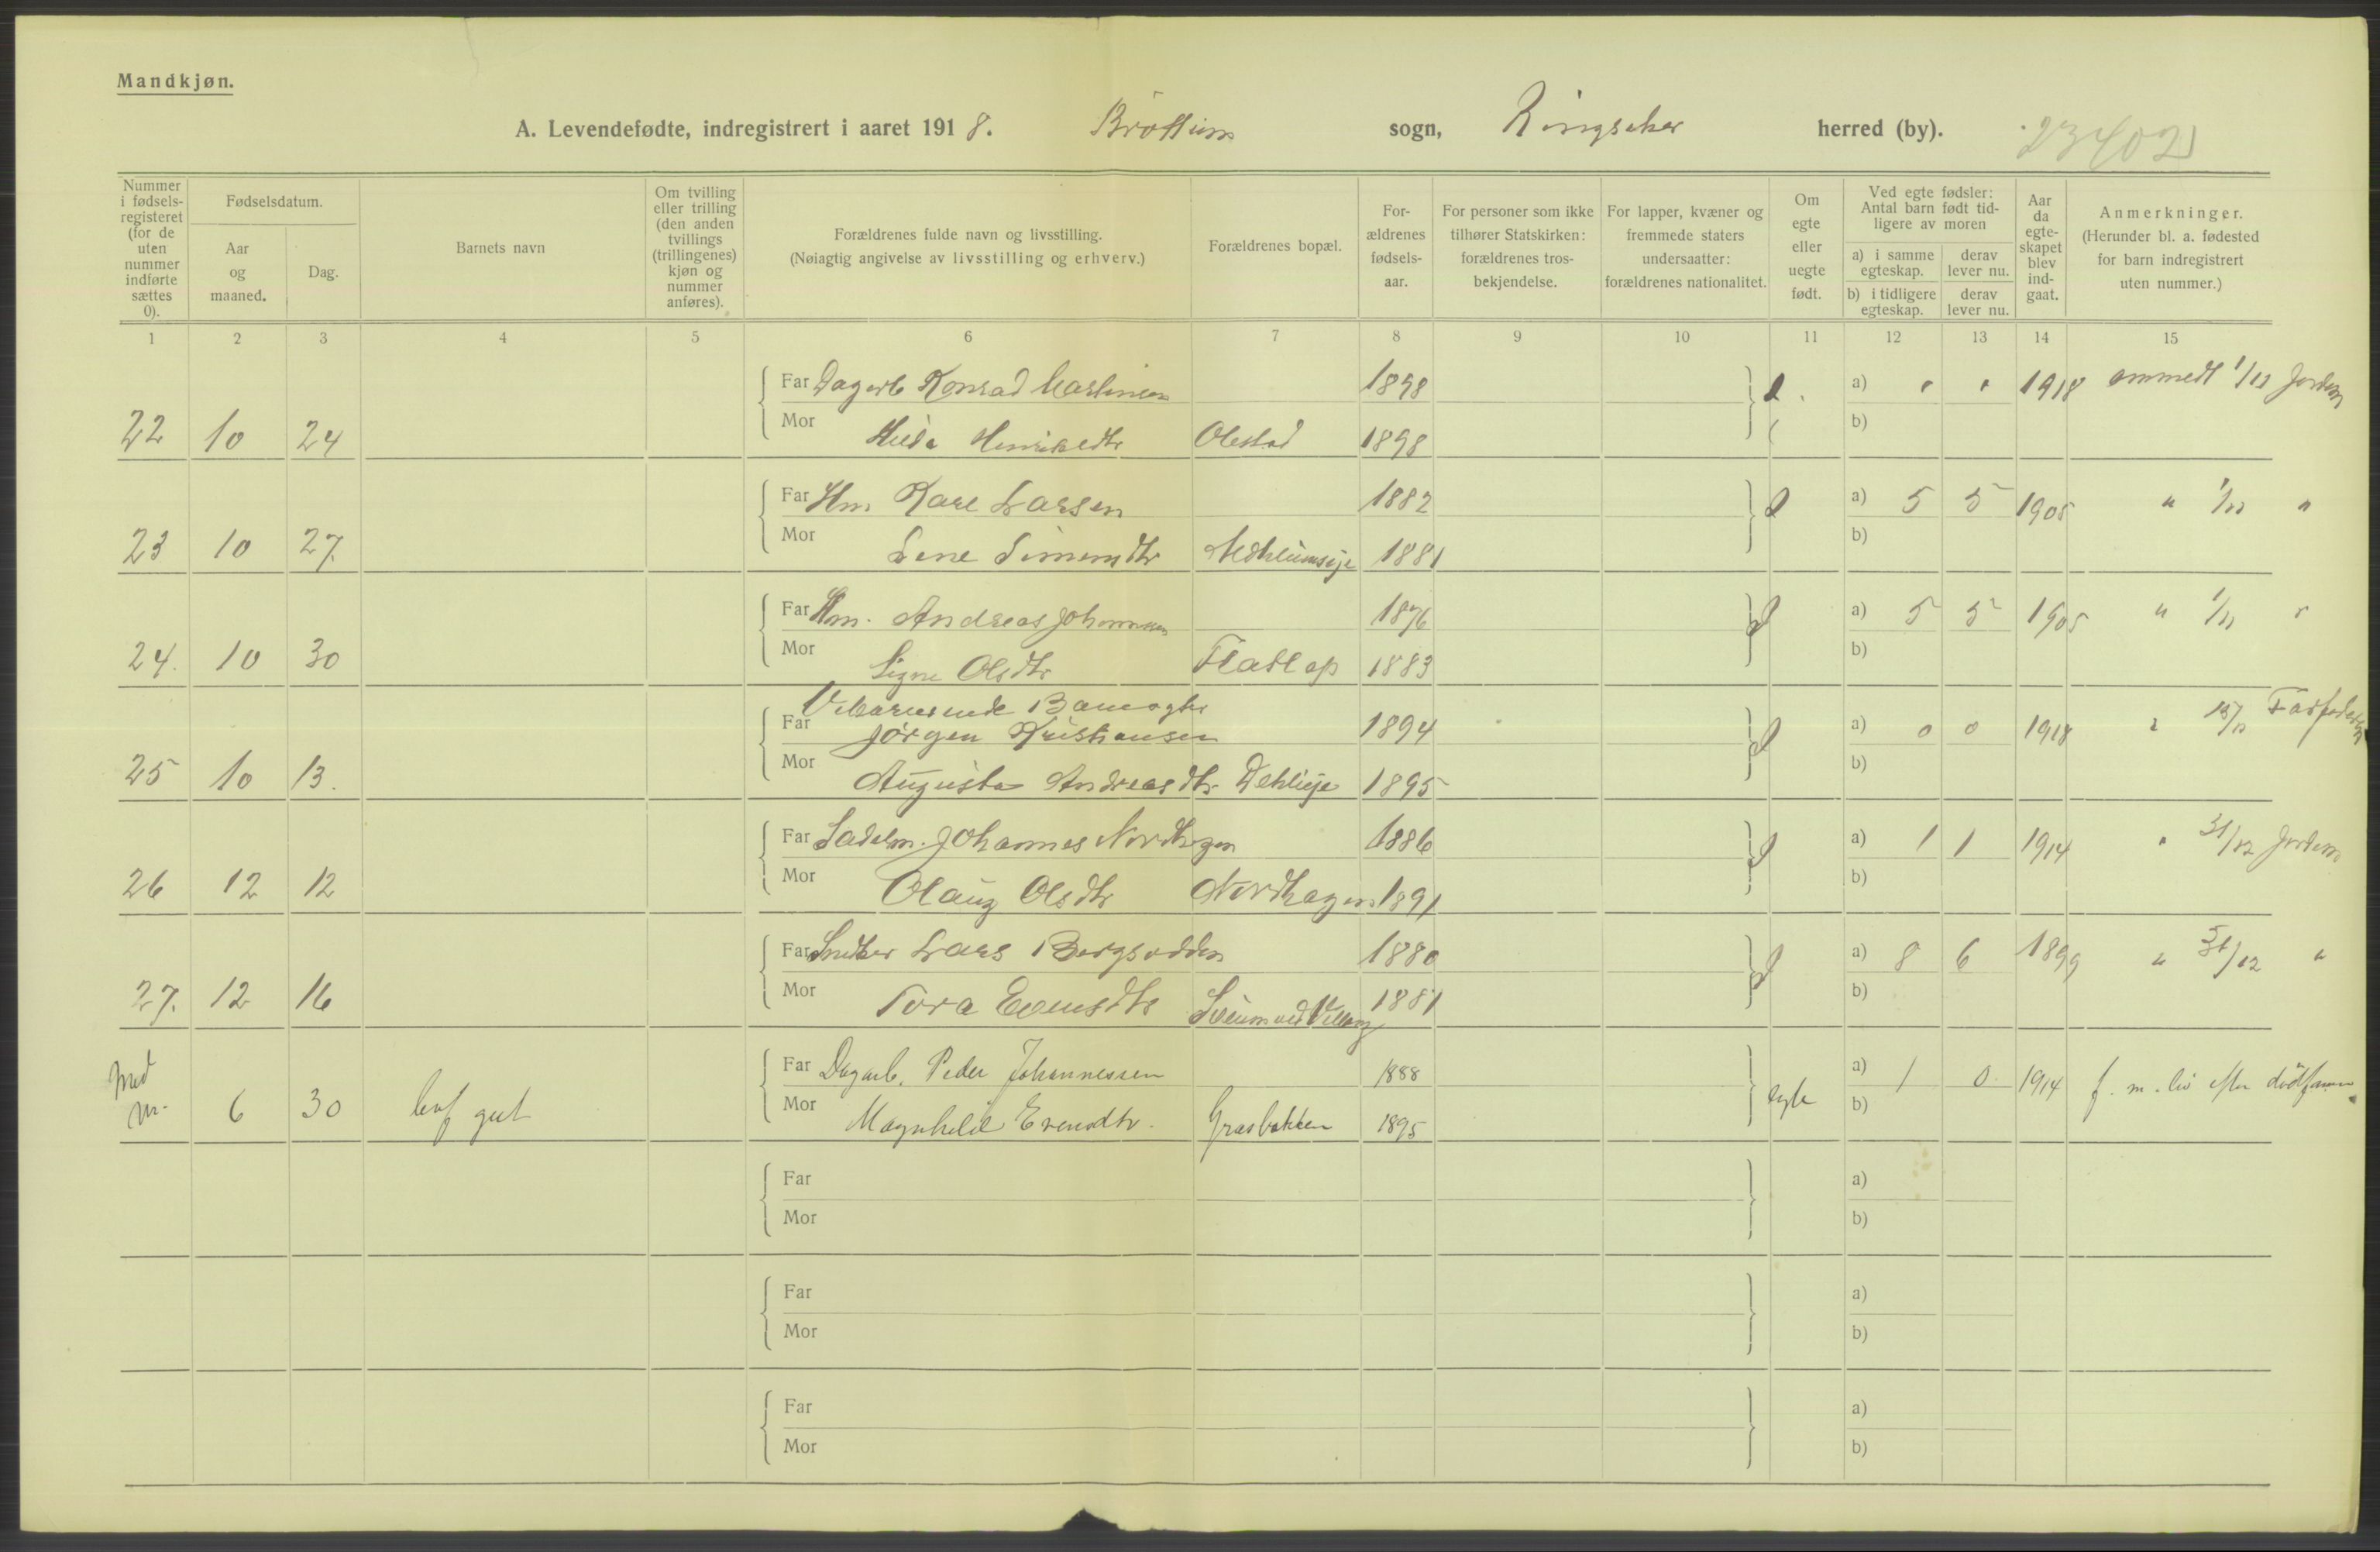 Mandkjøn.
A. Levendefødte, indregistrert i aaret 1918. Brøttum sogn, Ringsaker herred (by). 23402
Nummer i fødsels-registeret (for de uten nummer indførte sættes 0).
Fødselsdatum.
Aar og maaned.
Dag.
Barnets navn
Om tvilling eller trilling (den anden tvillings (trillingenes) kjøn og nummer anføres).
Forældrenes fulde navn og livsstilling.
(Nøiagtig angivelse av livsstilling og erhverv.)
Forældrenes bopæl.
For-ældrenes fødsels-aar.
For personer som ikke tilhører Statskirken: forældrenes tros-bekjendelse.
For lapper, kvæner og fremmede staters undersaatter: forældrenes nationalitet.
Om egte eller uegte født.
Ved egte fødsler: Antal barn født tid-ligere av moren
a) i samme egteskap.
derav lever nu.
b) i tidligere egteskap.
derav lever nu.
Aar da egte-skapet blev ind-gaat.
Anmerkninger.
(Herunder bl. a. fødested for barn indregistrert uten nummer.)
1 2 3 4 5 6 7 8 9 10 11 12 13 14 15
Far Dagarb Konrad Martinsen 1898 a) " " 1918 anmeldt 1/12 Jordem
22 10 24 Mor Hilda Henriksdtr Olestad 1898 b)
Far Hm. Kare Larsen 1882 a) 5 5 1905 " "
23 10 27. Mor Lene Simensdtr 1881 b)
Far Hm. Andreas Johannesen 1876 a) 5 5 1905 " "
24. 10 30 Mor Signe Olsdtr Flatlap 1883 b)
Far Jørgen Kristiansen 1894 a) 0 0 1918 Farfaderen
25 10 13. Mor Augusta Andreasdtr Dehlieje 1895 b)
Far Sadelm. Johannes Nordhagen 1886 a) 1 1 1914 " 31/12 Jordem
26 12 12 Mor Olaug Olsdtr Nordhagen 1891 b)
Far Snedker Lars Bergsodden 1880 a) 8 6 1899 " 31/12 "
27. 12 16 Mor Tora Evensdtr 1881 b)
Far Dagarb. Peder Johannessen 1888 egte a) 1 0 1914 f. m. liv efter
6 30 gut Mor Magnhild Evensdtr. Grasbakken 1895 b)
Far a)
Mor b)
Far a)
Mor b)
Far a)
Mor b)